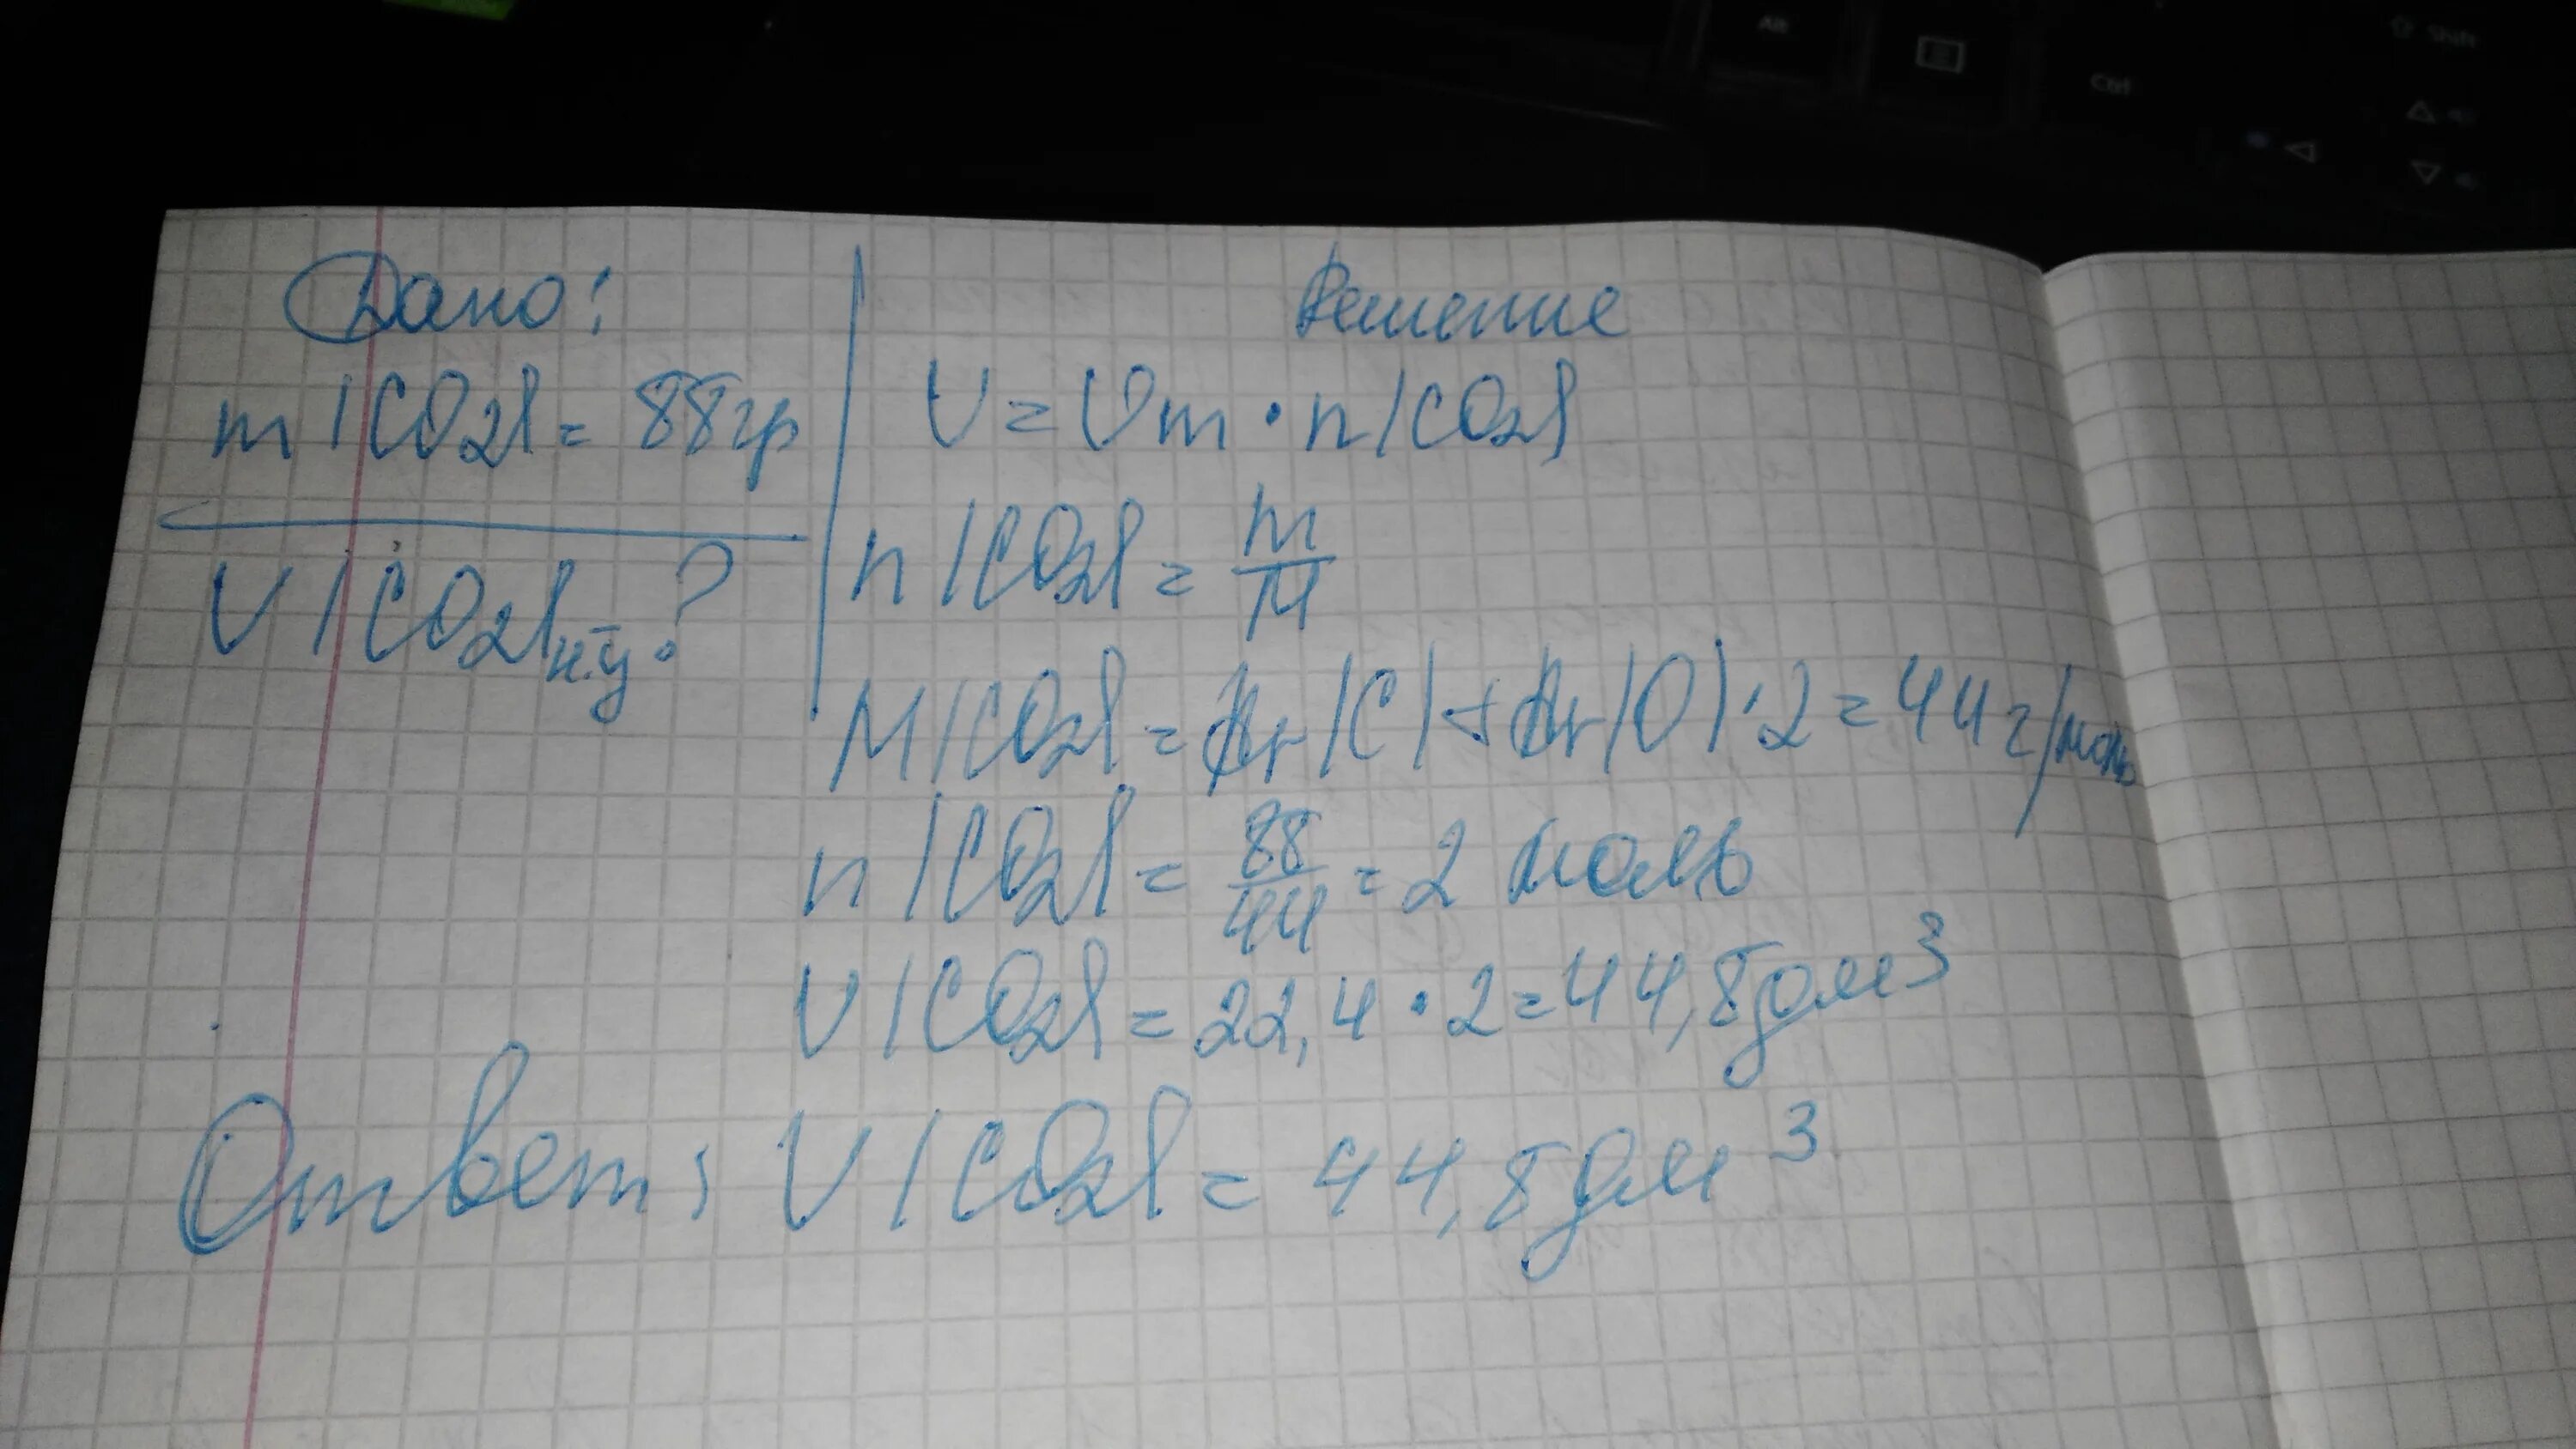 Alt
Ctrl
Shift
Дано:
m(CO2) = 88гр
V(CO2)н.у - ?
Решение
V = Vm · n(CO2)
n(CO2) = m/M
M(CO2) = Ar(C) + Ar(O)·2 = 44 г/моль
n(CO2) = 88/44 = 2 моль
V(CO2) = 22,4 · 2 = 44,8 дм³
Ответ: V(CO2) = 44,8 дм³